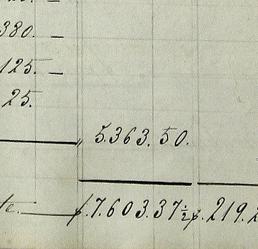 380. —
125. —
25.
" 5.363.50.
te. — f. 7.603.37½ f. 219.2